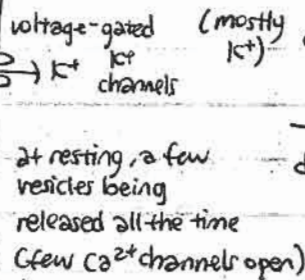 voltage-gated (mostly
K⁺ K⁺ K⁺)
channels
at resting, a few
vesicles being
released all the time
(few Ca²⁺ channels open)